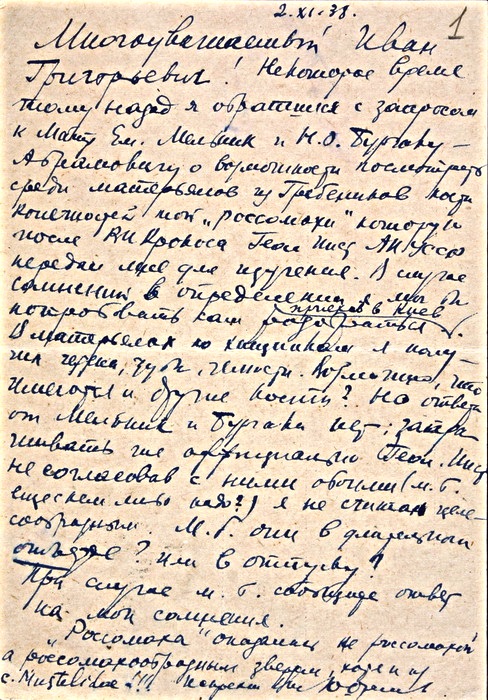 2.XI.38.
1
Многоуважаемый Иван
Григорьевич! Некоторое время
тому назад я обратился с запросом
к Мат. Ем. Мельник и Н.О. Бурчаку-
Абрамовичу о возможности посмотреть
среди матерьялов из Гребеников кости
конечностей той "россомахи" которую
после Крокоса Геол Инст АН УССР
передал мне для изучения. В случае
сомнений в определении я мог бы
приехав в Киев
попробовать сам разобраться.
В матерьялах по хищникам я полу-
чил черепа, зубы, челюсти. Возможно, что
имеются и другие кости? Но ответа
от Мельник и Бурчака нет; запра-
шивать же официально Геол. Инст
не согласовав с ними обоими (м. б.
еще с кем либо надо?) я не считаю целе-
сообразным. М.б. они в длительном
отъезде? Или в отпуску?
При случае м. б. сообщите ответ
на мои сомнения.
"Россомаха" оказалась не россомахой
а россомахообразным зверем, надо
с. Mustelidae!!!